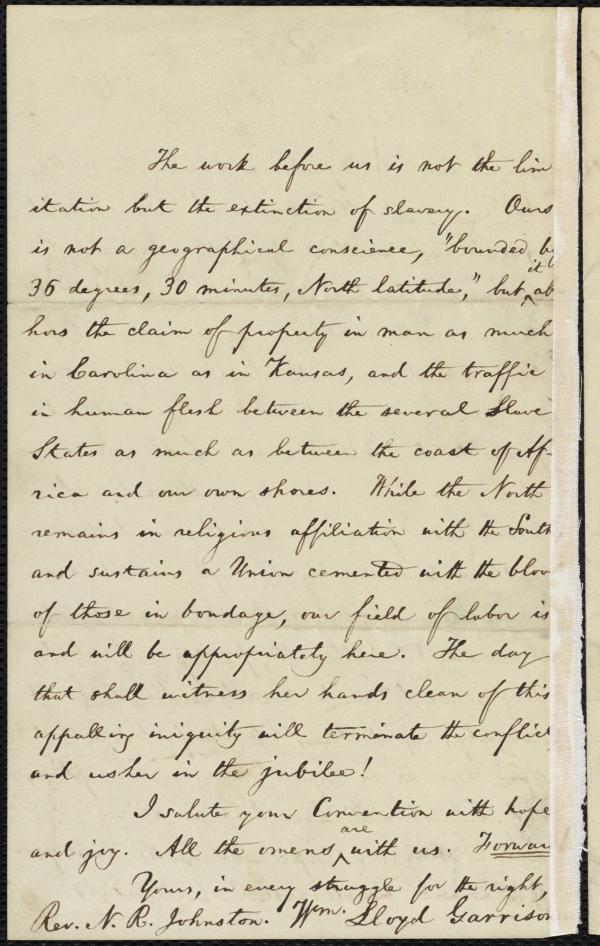 The work before us is not the lim
itation but the extinction of slavery. Ours
is not a geographical conscience, "bounded b
36 degrees, 30 minutes, North latitude," but it ab
hors the claim of property in man as much
in Carolina as in Kansas, and the traffic
in human flesh between the several Slave
States as much as between the coast of Af-
rica and our own shores. While the North
remains in religious affiliation with the South
and sustains a Union cemented with the bloo
of those in bondage, our field of labor is
and will be appropriately here. The day
that shall witness her hands clean of this
appalling iniquity will terminate the conflict
and usher in the jubilee!
I salute your Convention with hope
and joy. All the omens are with us. Forwar
Yours, in every struggle for the right,
Rev. N. R. Johnston. Wm. Lloyd Garrison